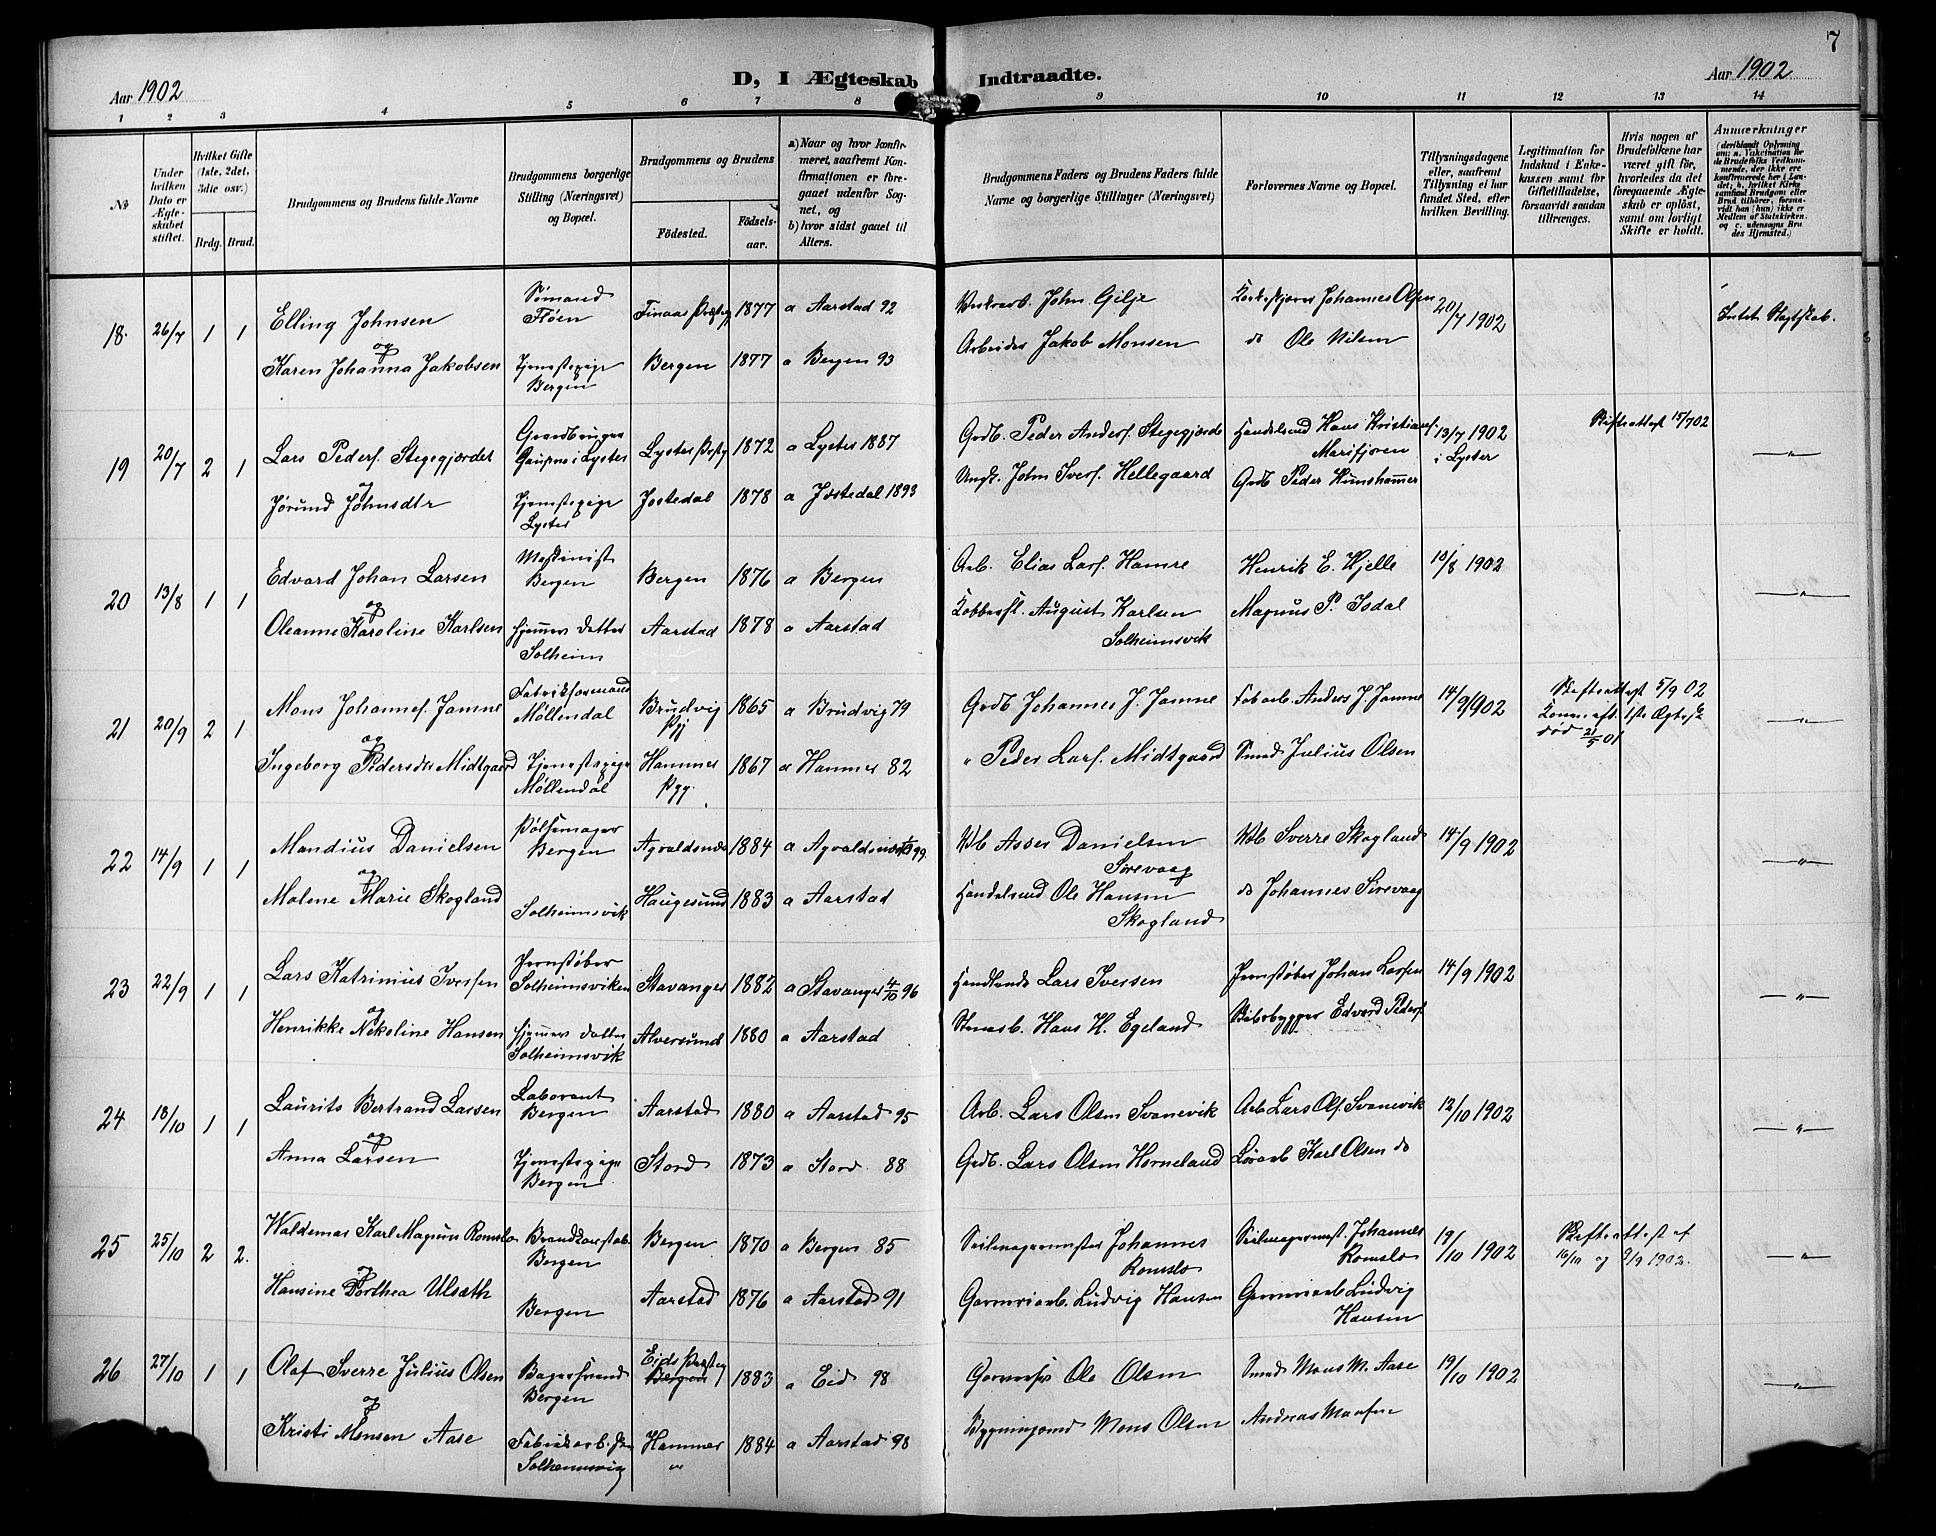 7
Aar 1902
D, I Ægteskab Indtraadte.
Aar 1902
1 2 3 4 5 6 7 8 9 10 11 12 13 14
No
Under hvilken Dato er Ægteskabet stiftet.
Hvilket Gifte (1ste, 2det, 3die osv.)
Brdg. Brud.
Brudgommens og Brudens fulde Navne
Brudgommens borgerlige Stilling (Næringsvei) og Bopæl.
Brudgommens og Brudens
Födested.
Födselsaar.
a) Naar og hvor konfirmeret, saafremt Konfirmationen er foregaaet udenfor Sognet, og
b) hvor sidst gaaet til Alters.
Brudgommens Faders og Brudens Faders fulde Navne og borgerlige Stillinger (Næringsvei)
Forlovernes Navne og Bopæl.
Tillysningsdagene eller, saafremt Tillysning ei har fundet Sted, efter hvilken Bevilling.
Legitimation for Indskud i Enkekassen samt for Giftetilladelse, forsaavidt saadan tiltrænges.
Hvis nogen af Brudefolkene har været gift för, hvorledes da det foregaaende Ægteskab er oplöst, samt om lovligt Skifte er holdt.
Anmærkninger
(deriblandt Oplysning om: a. Vakcination for de Brudefolks Vedkommende, der ikke ere konfirmerede her i Landet; b. hvilket Kirkesamfund Brudgom eller Brud tilhörer, forsaavidt han (hun) ikke er Medlem af Statskirken, og c. udensogns Brudes Hjemsted.)
18. 26/7 1 1 Elling Johnsen Sømand Fløen 1877 a Aarstad 92 John Gilje Johannes Olsen 20/7 1902
og
Karen Johanna Jakobsen Tjenestepige Bergen Bergen 1877 a Bergen 93 Arbeider Jakob Monsen do Ole Nilsen
19 20/7 2 1 Lars Peders. Stegegjærdet Gaardbruger Gaupne i Lyster Lyster 1872 a Lyster 1887 Grdb. Peder Anders. Stegegjærde Handelsmd Hans Kristians. Marifjøren 13/7 1902 i Lyster Skifteattest 15/7 02 „
og
Jørund Johnsdtr Tjenestepige Lyster Jostedal 1878 a Jostedal 1893 Ungk. John Ivers. Hellegaard Grdb Peder Kumshamer
20 13/8 1 1 Edvard Johan Larsen Maskinist Bergen Bergen 1876 a Bergen Arb. Elias Lars. Hamre Henrik E. Hjelle 10/8 1902 „
og
Oleanne Karoline Karlsen hjemmev. Datter Solheim Aarstad 1878 a Aarstad Kobbersl. August Karlsen Solheimsvik Magnus P. Isdal
21 20/9 2 1 Mons Johannes. Jamne Fabrikformand Møllendal Brudvig Pgj 1865 a Brudvig 79 Grdb Johannes J. Jamne Fabarb. Anders J. Jamne 14/9 1902 Skifteattest 5/9 02 Konen af 1ste Ægtesk død 21/5 01 „
og
Ingeborg Pedersdtr Midtgaard Tjenestepige Møllendal Hammer Pgj. 1867 a Hammer 82 „ Peder Lars. Midtgaard Smed Julius Olsen
22 14/9 1 1 Mandius Danielsen Pølsemager Bergen Agvaldsnæs 1884 a Agvaldsnæs 99. Asser Danielsen Sirevaag Sverre Skogland 14/9 1902 „
og
Malene Marie Skogland Solheimsvik Haugesund 1883 a Aarstad Handelsmd Ole Hansen Skogland do Johannes Sirevaag
23 22/9 1 1 Lars Katrinius Iversen Jernstøber Solheimsviken Stavanger 1882 a Stavanger 4/10 96 Handlende Lars Iversen Jernstøber Johan Larsen 14/9 1902 „
og
Henrikke Nikoline Hansen hjemmev. Datter Solheimsvik Alversund 1880 a Aarstad Hans H. Egeland Edvard Peders.
24 18/10 1 1 Laurits Bertrand Larsen Laborant Bergen Aarstad 1880 a Aarstad 95 Arb. Lars Olsen Svanevik Arb Lars Ols. Svanevik 12/10 1902 „
og
Anna Larsen Tjenestepige Bergen Stord 1873 a Stord 88 Grdb. Lars Olsen Horneland Karl Olsen do
25 25/10 2 2. Waldemar Karl Magnus Romslo Brandkonstab. Bergen Bergen 1870 a Bergen 85 Seilmagermester Johannes Romslo Seilmagermest. Johannes Romslo 19/10 1902 Skifteattest af 16/10 og 9/9 1902. „
og
Hansine Dorthea Ulsæth Bergen Aarstad 1876 a Aarstad 91 Garveriarb. Ludvig Hansen Garveriarb Ludvig Hansen
26 27/10 1 1 Olaf Sverre Julius Olsen Bagersvend Bergen Eids Præsteg Bergen 1883 a Eid 98 Ole Olsen Smed Mons M. Aase 19/10 1902 „
og
Kristi Monsen Aase Fabrikarb. Solheimsvig Hammer „ 1884 a Aarstad 98 Bygningsmd Mons Olsen Andreas